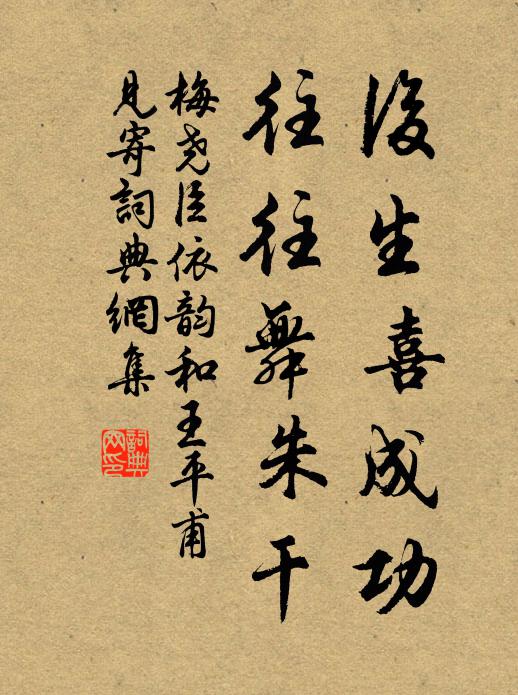 後生喜成功
往往舞朱干
梅堯臣依韵和王平甫
見寄詞典網集
詞典
网印